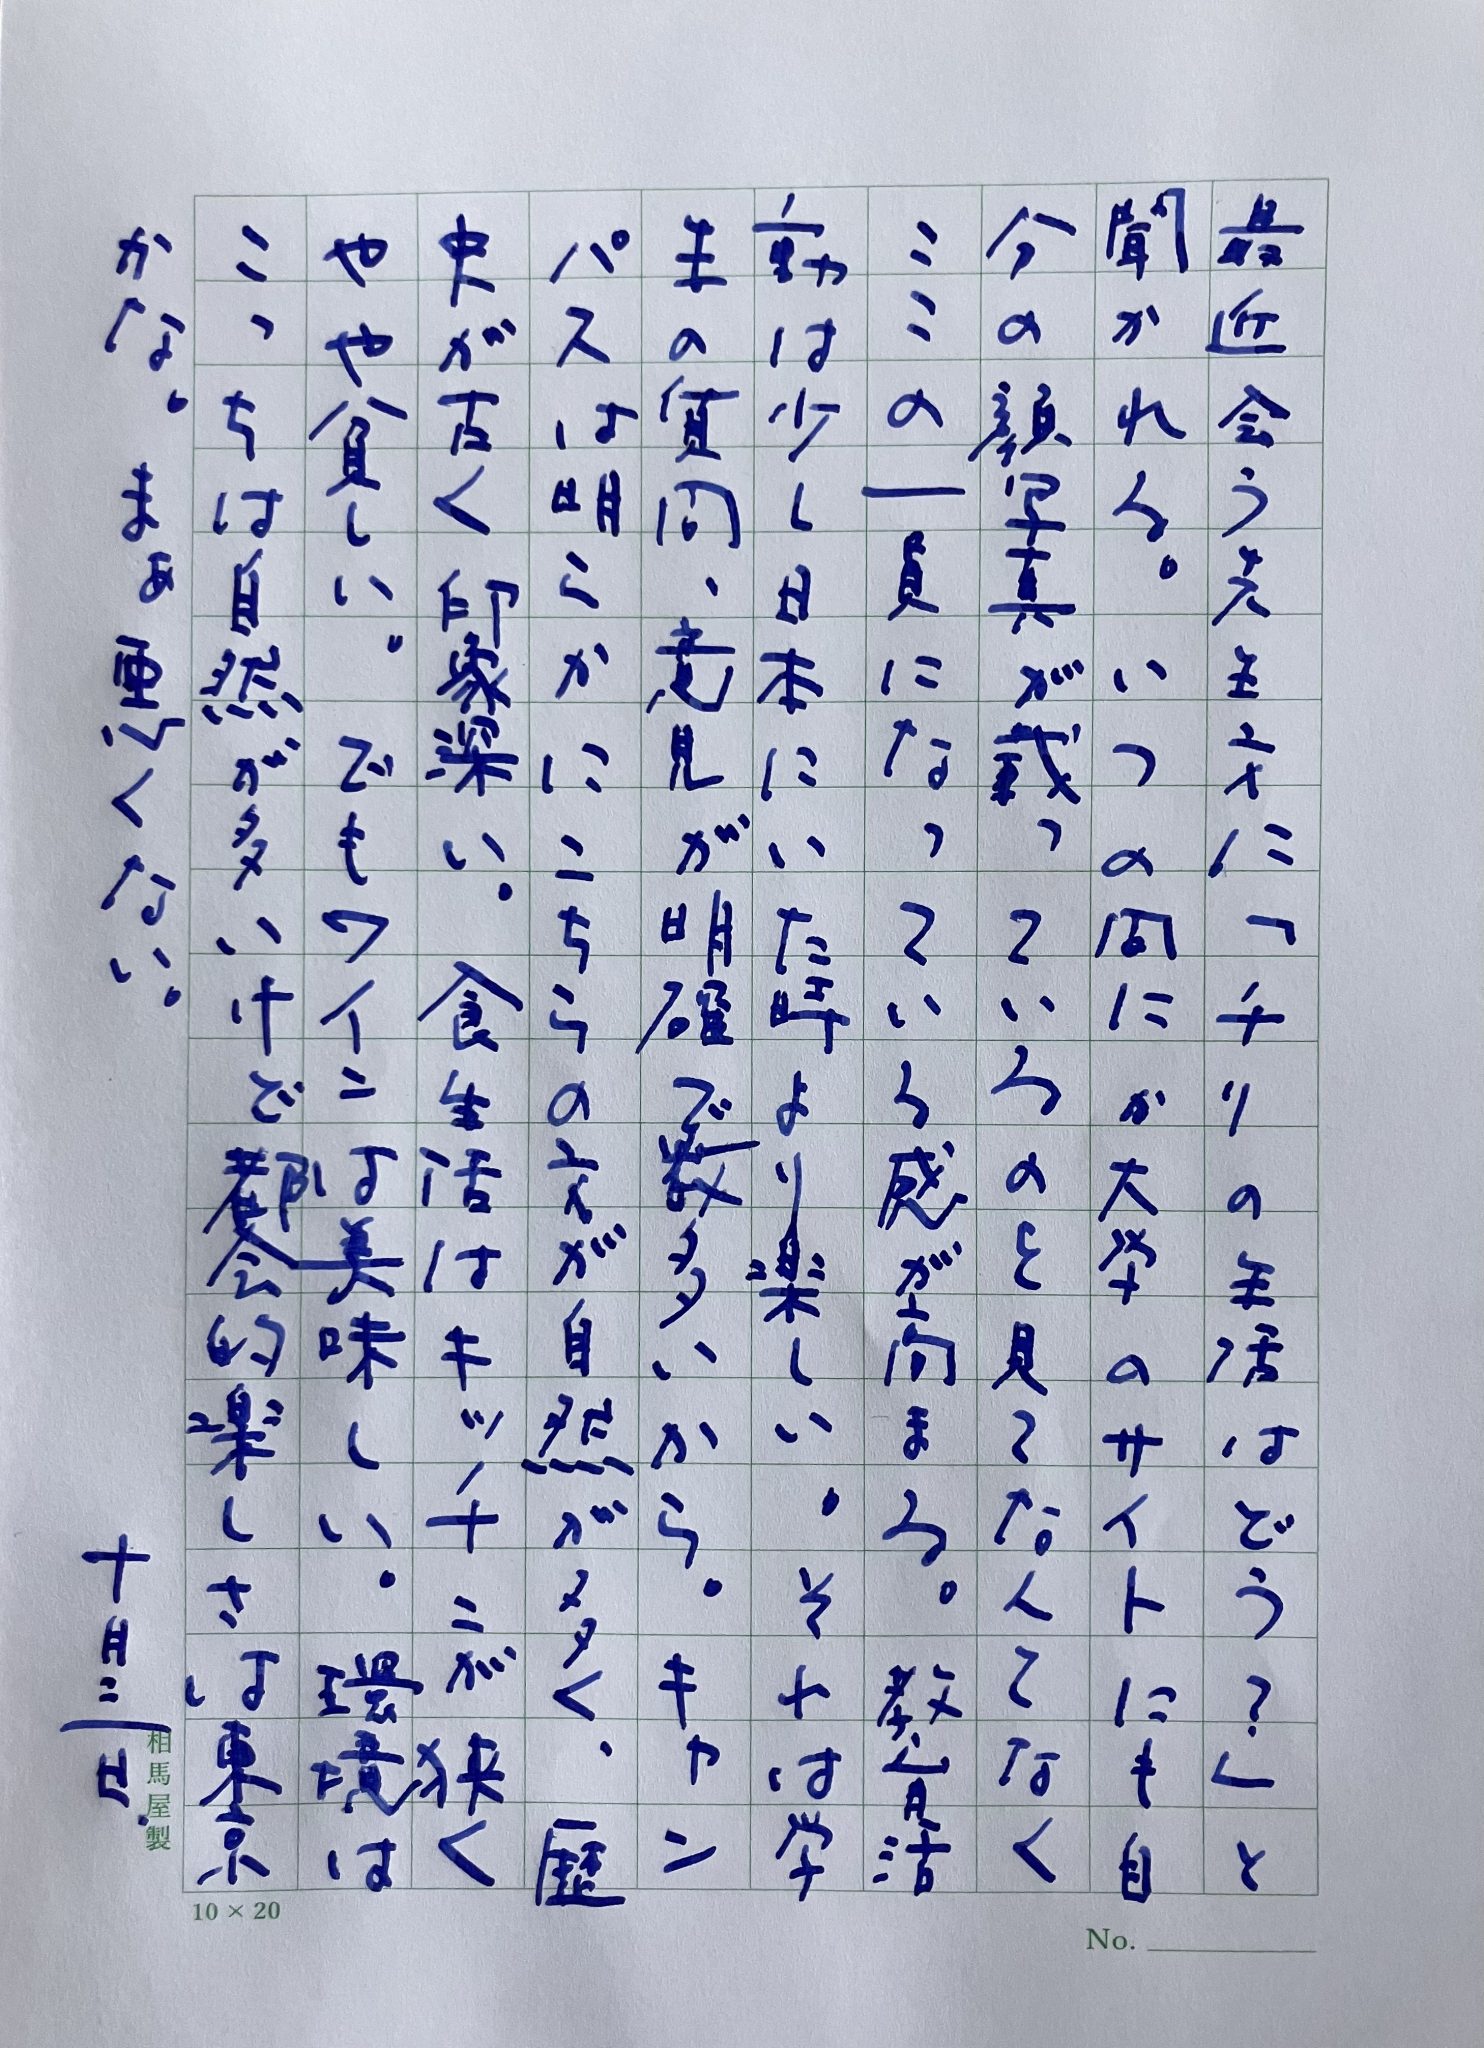 最近会う先生方に「チリの生活はどう?」と
聞かれる。いつの間にか大学のサイトにも自
分の顔写真が載っているのと見てなんてなく
ミミの一員になっている感が高まる。教育活
動は少し日本にいた時より楽しい。それは学
生の質問、意見が明確で数多いから。キャン
パスは明らかにこちらの方が自然が多く、歴
史が古く印象深い。食生活はキッチニが狭く
やや貧しい。でもワイニは美味しい。環境は
こっちは自然が多いけで都会的楽しさは東京
かな。まぁ悪くない。
十月三一日.
相馬屋製
10 × 20
No.